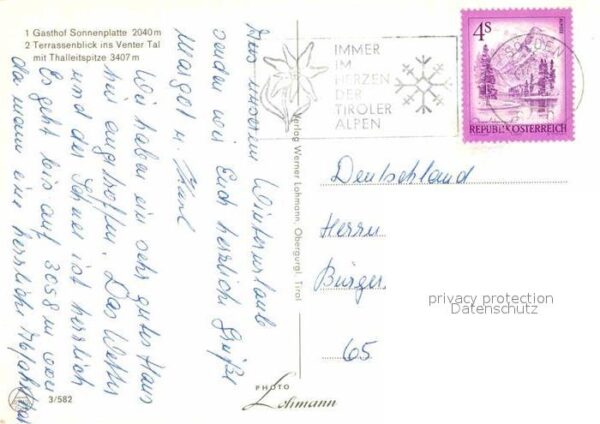 1 Gasthof Sonnenplatte 2040 m
2 Terrassenblick ins Venter Tal
mit Thalleitspitze 3407 m
Aus unserem Winterurlaub
senden wir Euch herzliche Grüße
Margot u.
Wir haben ein sehr gutes Haus
hier angetroffen. Das Wetter
und der Schnee ist herrlich
Es geht bis auf 3058 m von
da wann eine herrliche Abfahrt
Verlag Werner Lohmann, Obergurgl, Tirol
IMMER
IM
HERZEN
DER
TIROLER
ALPEN
SÖLDEN
4S
REPUBLIK ÖSTERREICH
Deutschland
Herrn
Bürger
65
privacy protection
Datenschutz
3/582
PHOTO
Lohmann